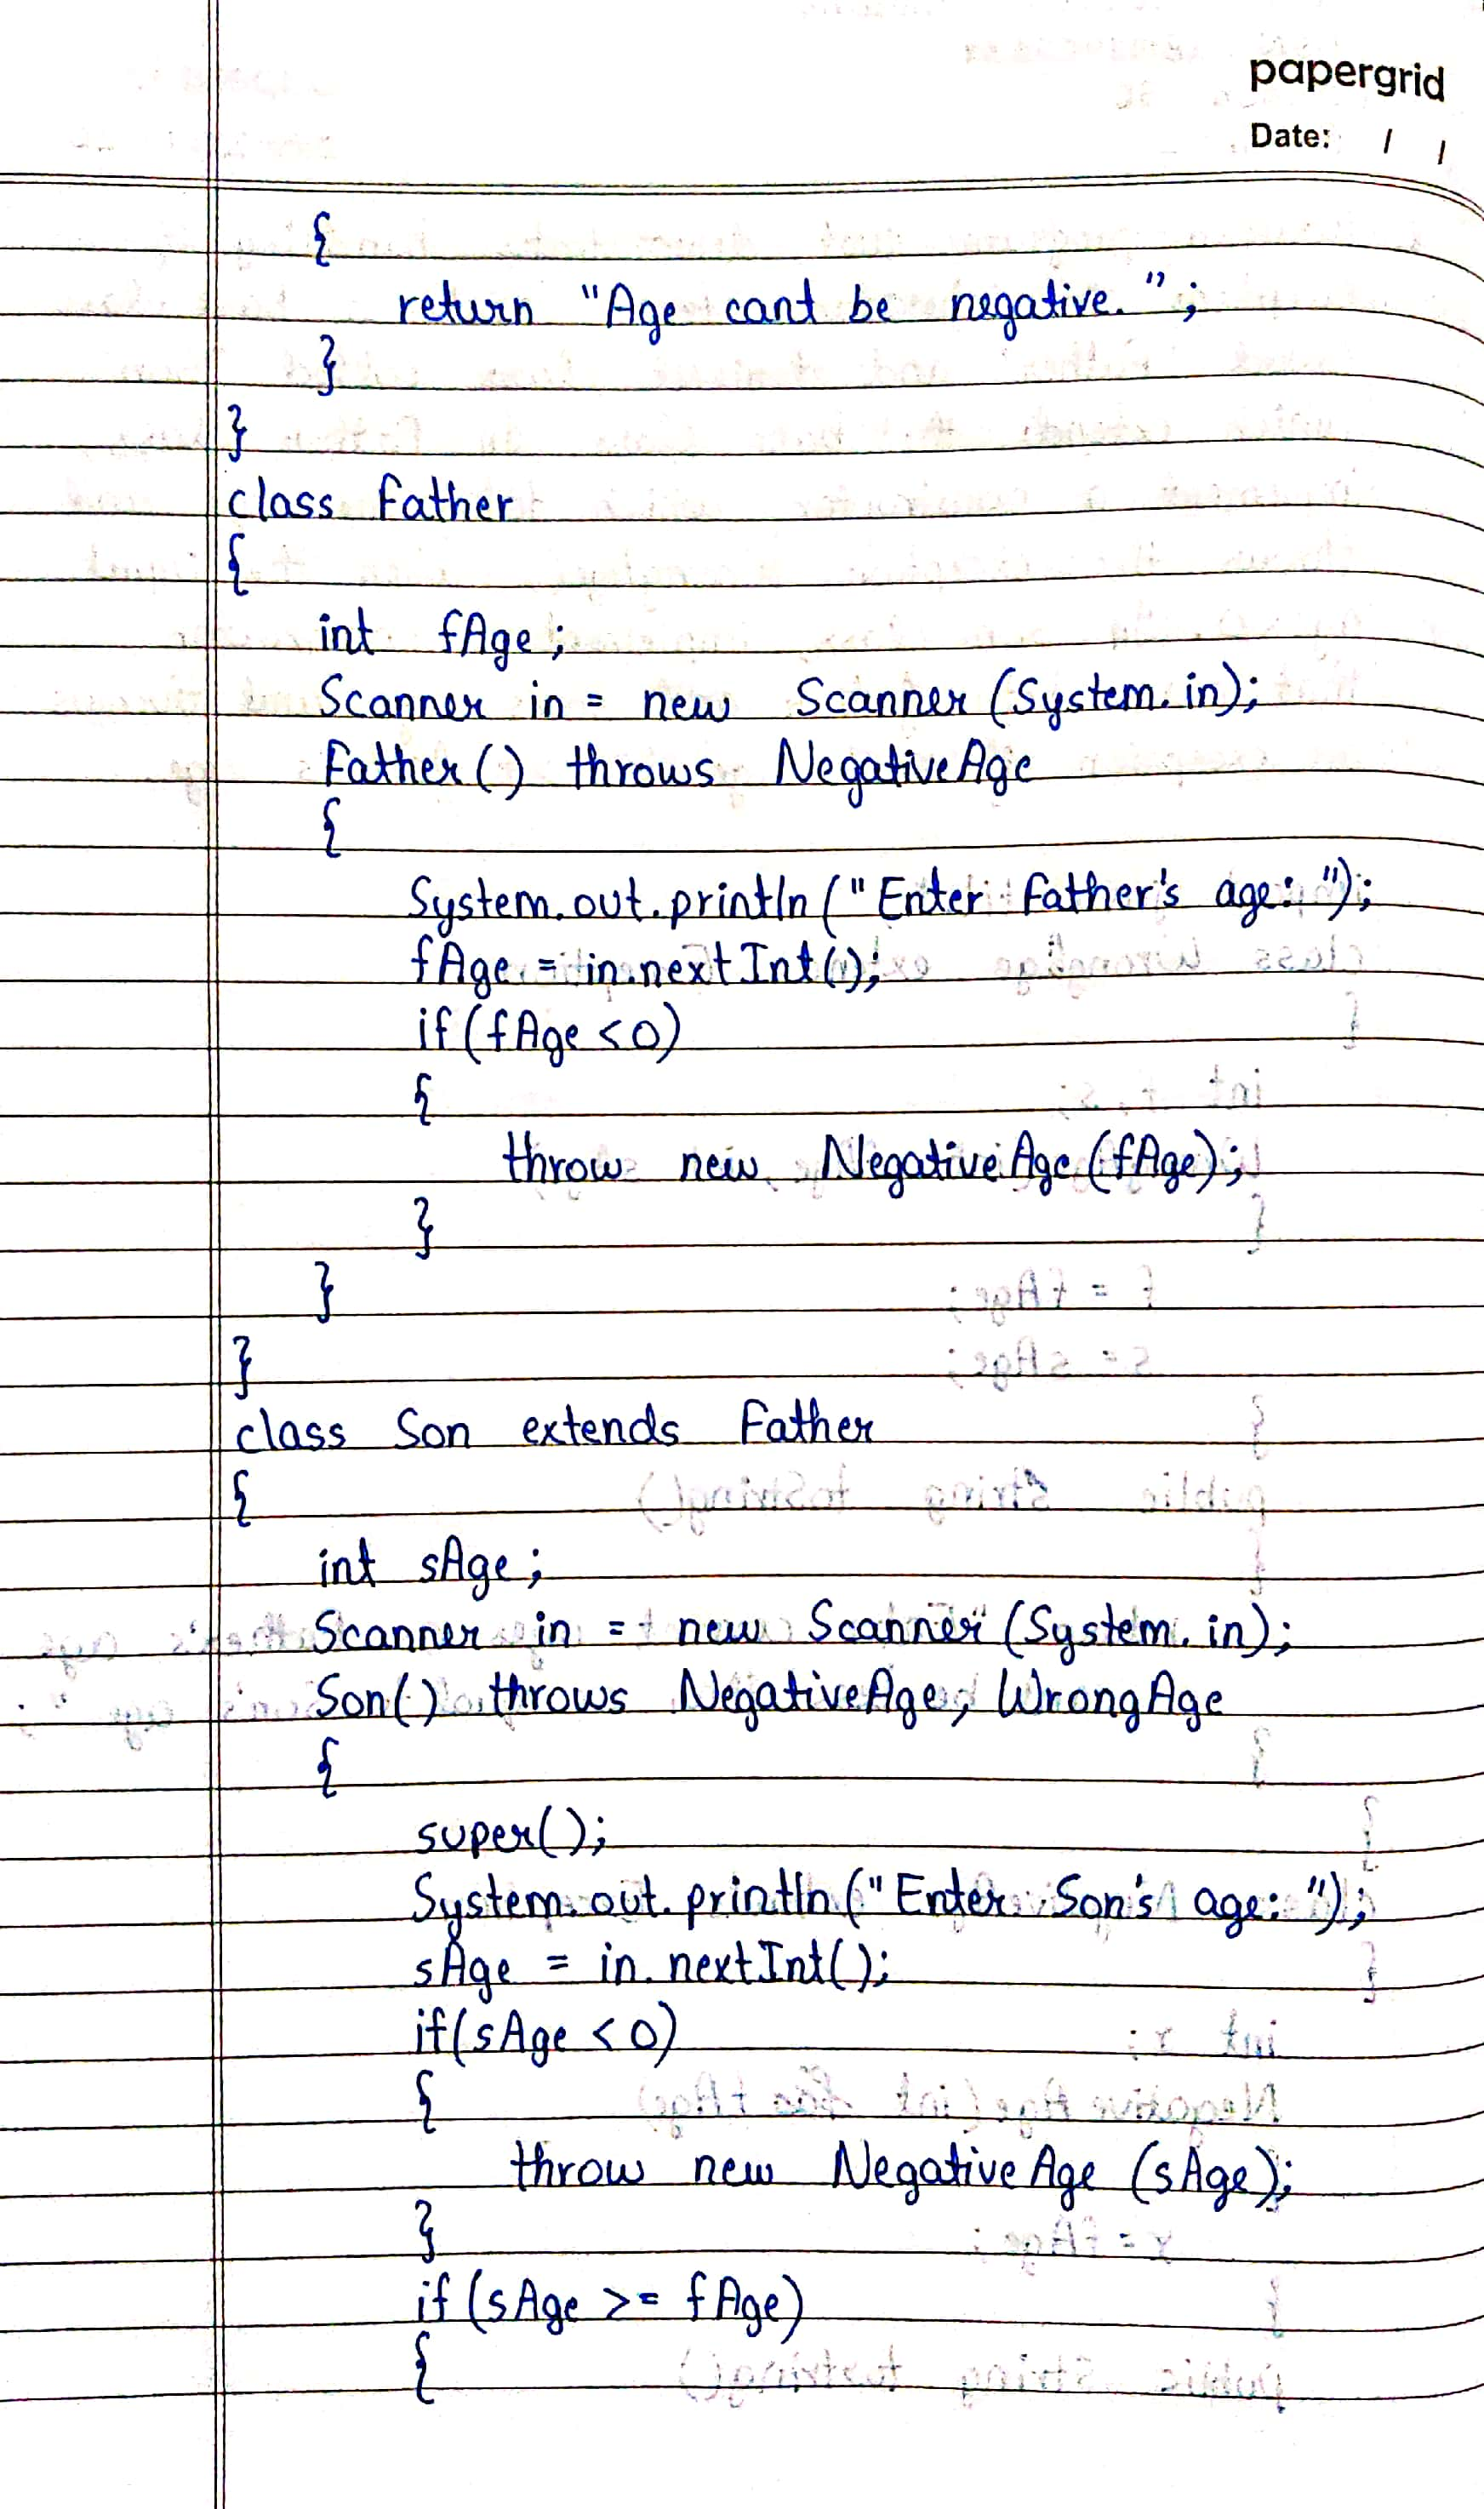 papergrid
Date: / /
{
return "Age cant be negative.";
}
}
class Father
{
int fAge;
Scanner in = new Scanner(System.in);
Father() throws NegativeAge
{
System.out.println("Enter Father's age: ");
fAge = in.nextInt();
if(fAge <0)
{
throw new NegativeAge(fAge);
}
}
}
class Son extends Father
{
int sAge;
Scanner in = new Scanner(System.in);
Son() throws NegativeAge, WrongAge
{
super();
System.out.println("Enter Son's age: ");
sAge = in.nextInt();
if(sAge <0)
{
throw new NegativeAge (sAge);
}
if(sAge >= fAge)
{